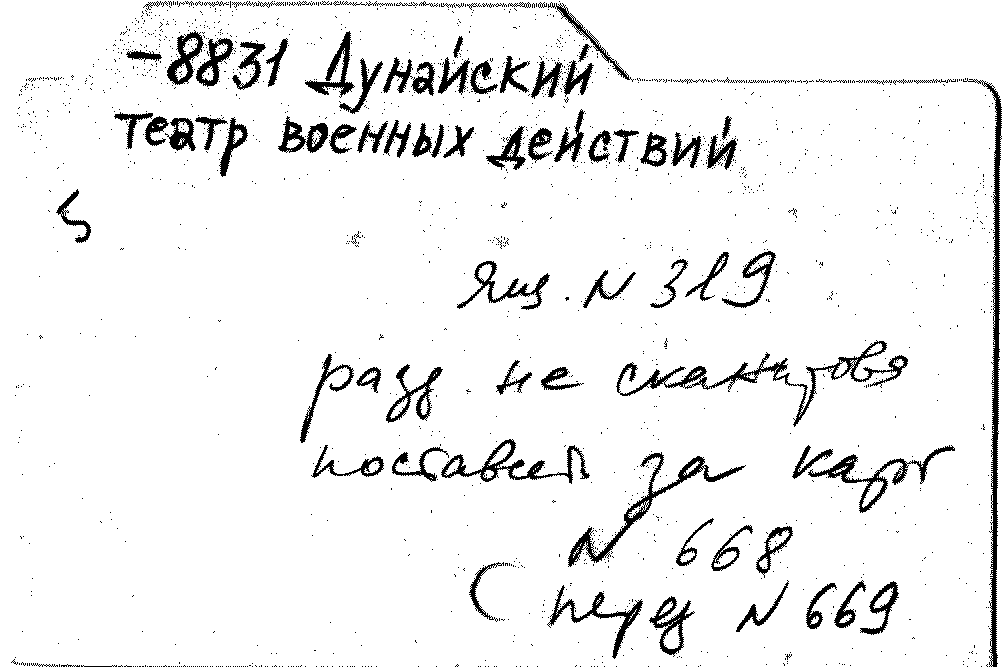 -8831 Дунайский
театр военных действий
Ящ. N 319
разд. не сканирова
поставит за карт
N 668
(перед N 669